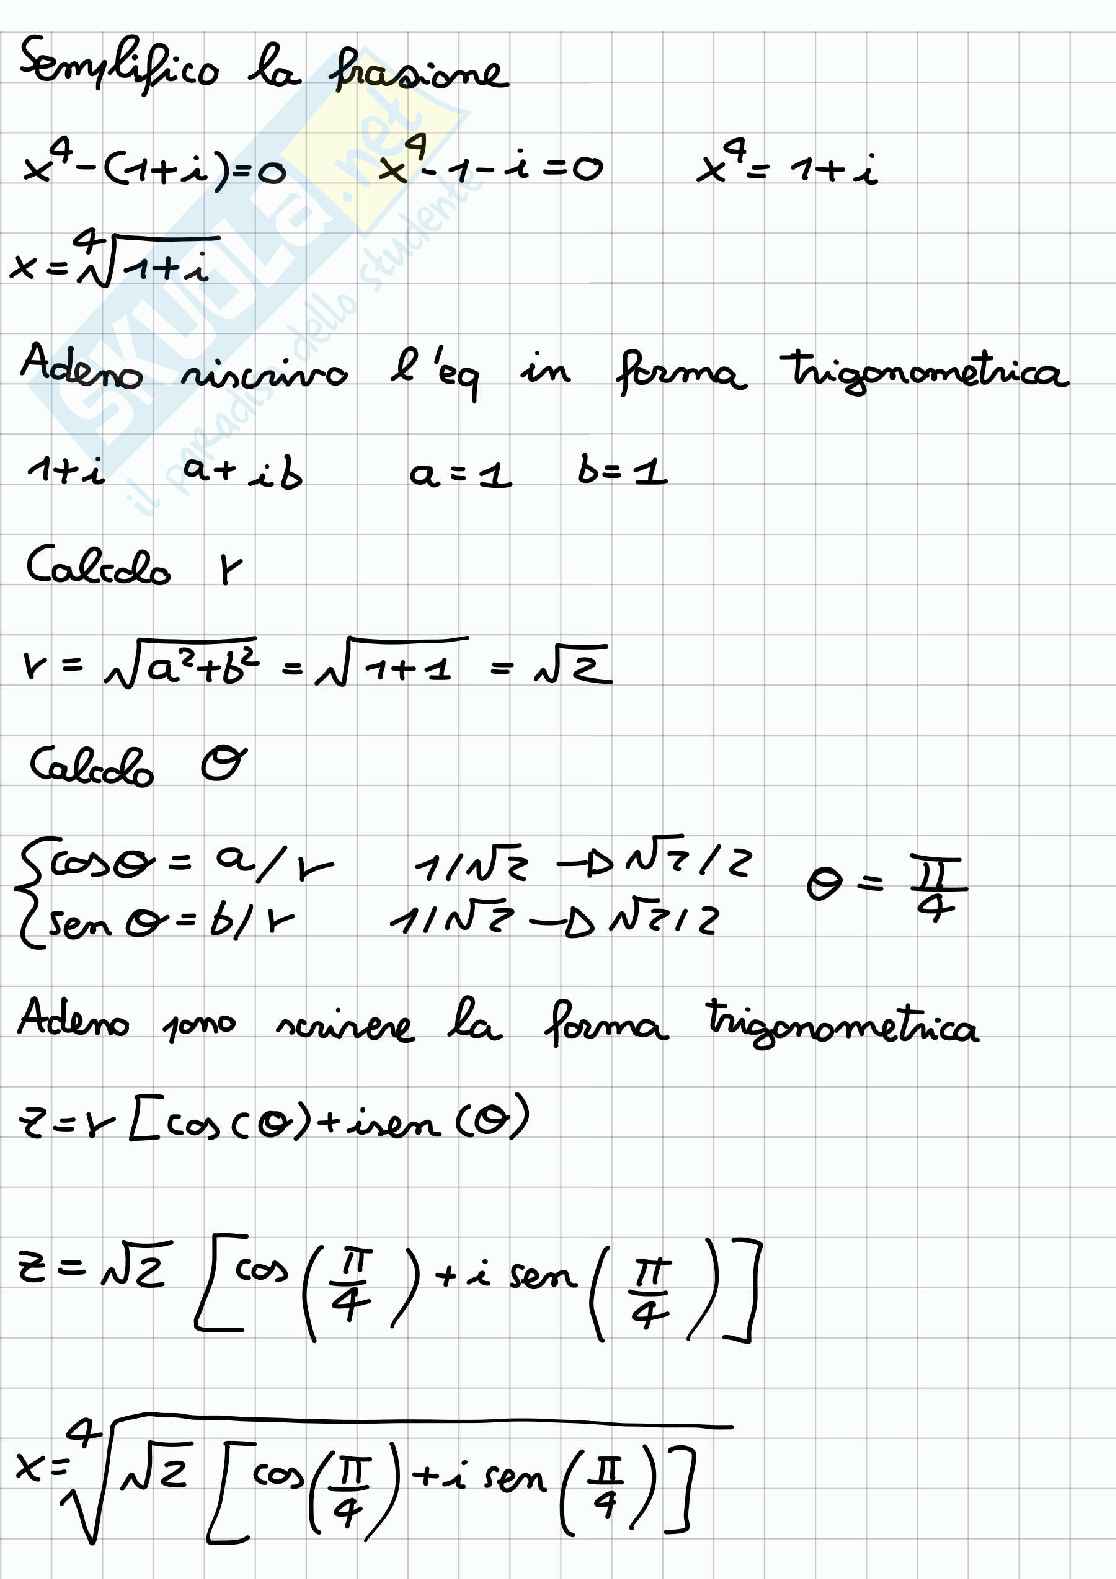 Semplifico la frasione
x⁴-(1+i)=0 x⁴-1-i=0 x⁴=1+i
x=⁴√(1+i)
Adesso riscrivo l'eq in forma trigonometrica
1+i a+ib a=1 b=1
Calcolo r
r = √(a²+b²) = √(1+1) = √2
Calcolo θ
{cosθ = a/r 1/√2 → √2/2 θ = π/4
{sen θ = b/r 1/√2 → √2/2
Adesso posso scrivere la forma trigonometrica
z=r[cos(θ)+isen(θ)
z=√2 [cos(π/4)+i sen(π/4)]
x=⁴√(√2 [cos(π/4)+i sen(π/4)])
SKUOLA.net
il paradiso dello studente